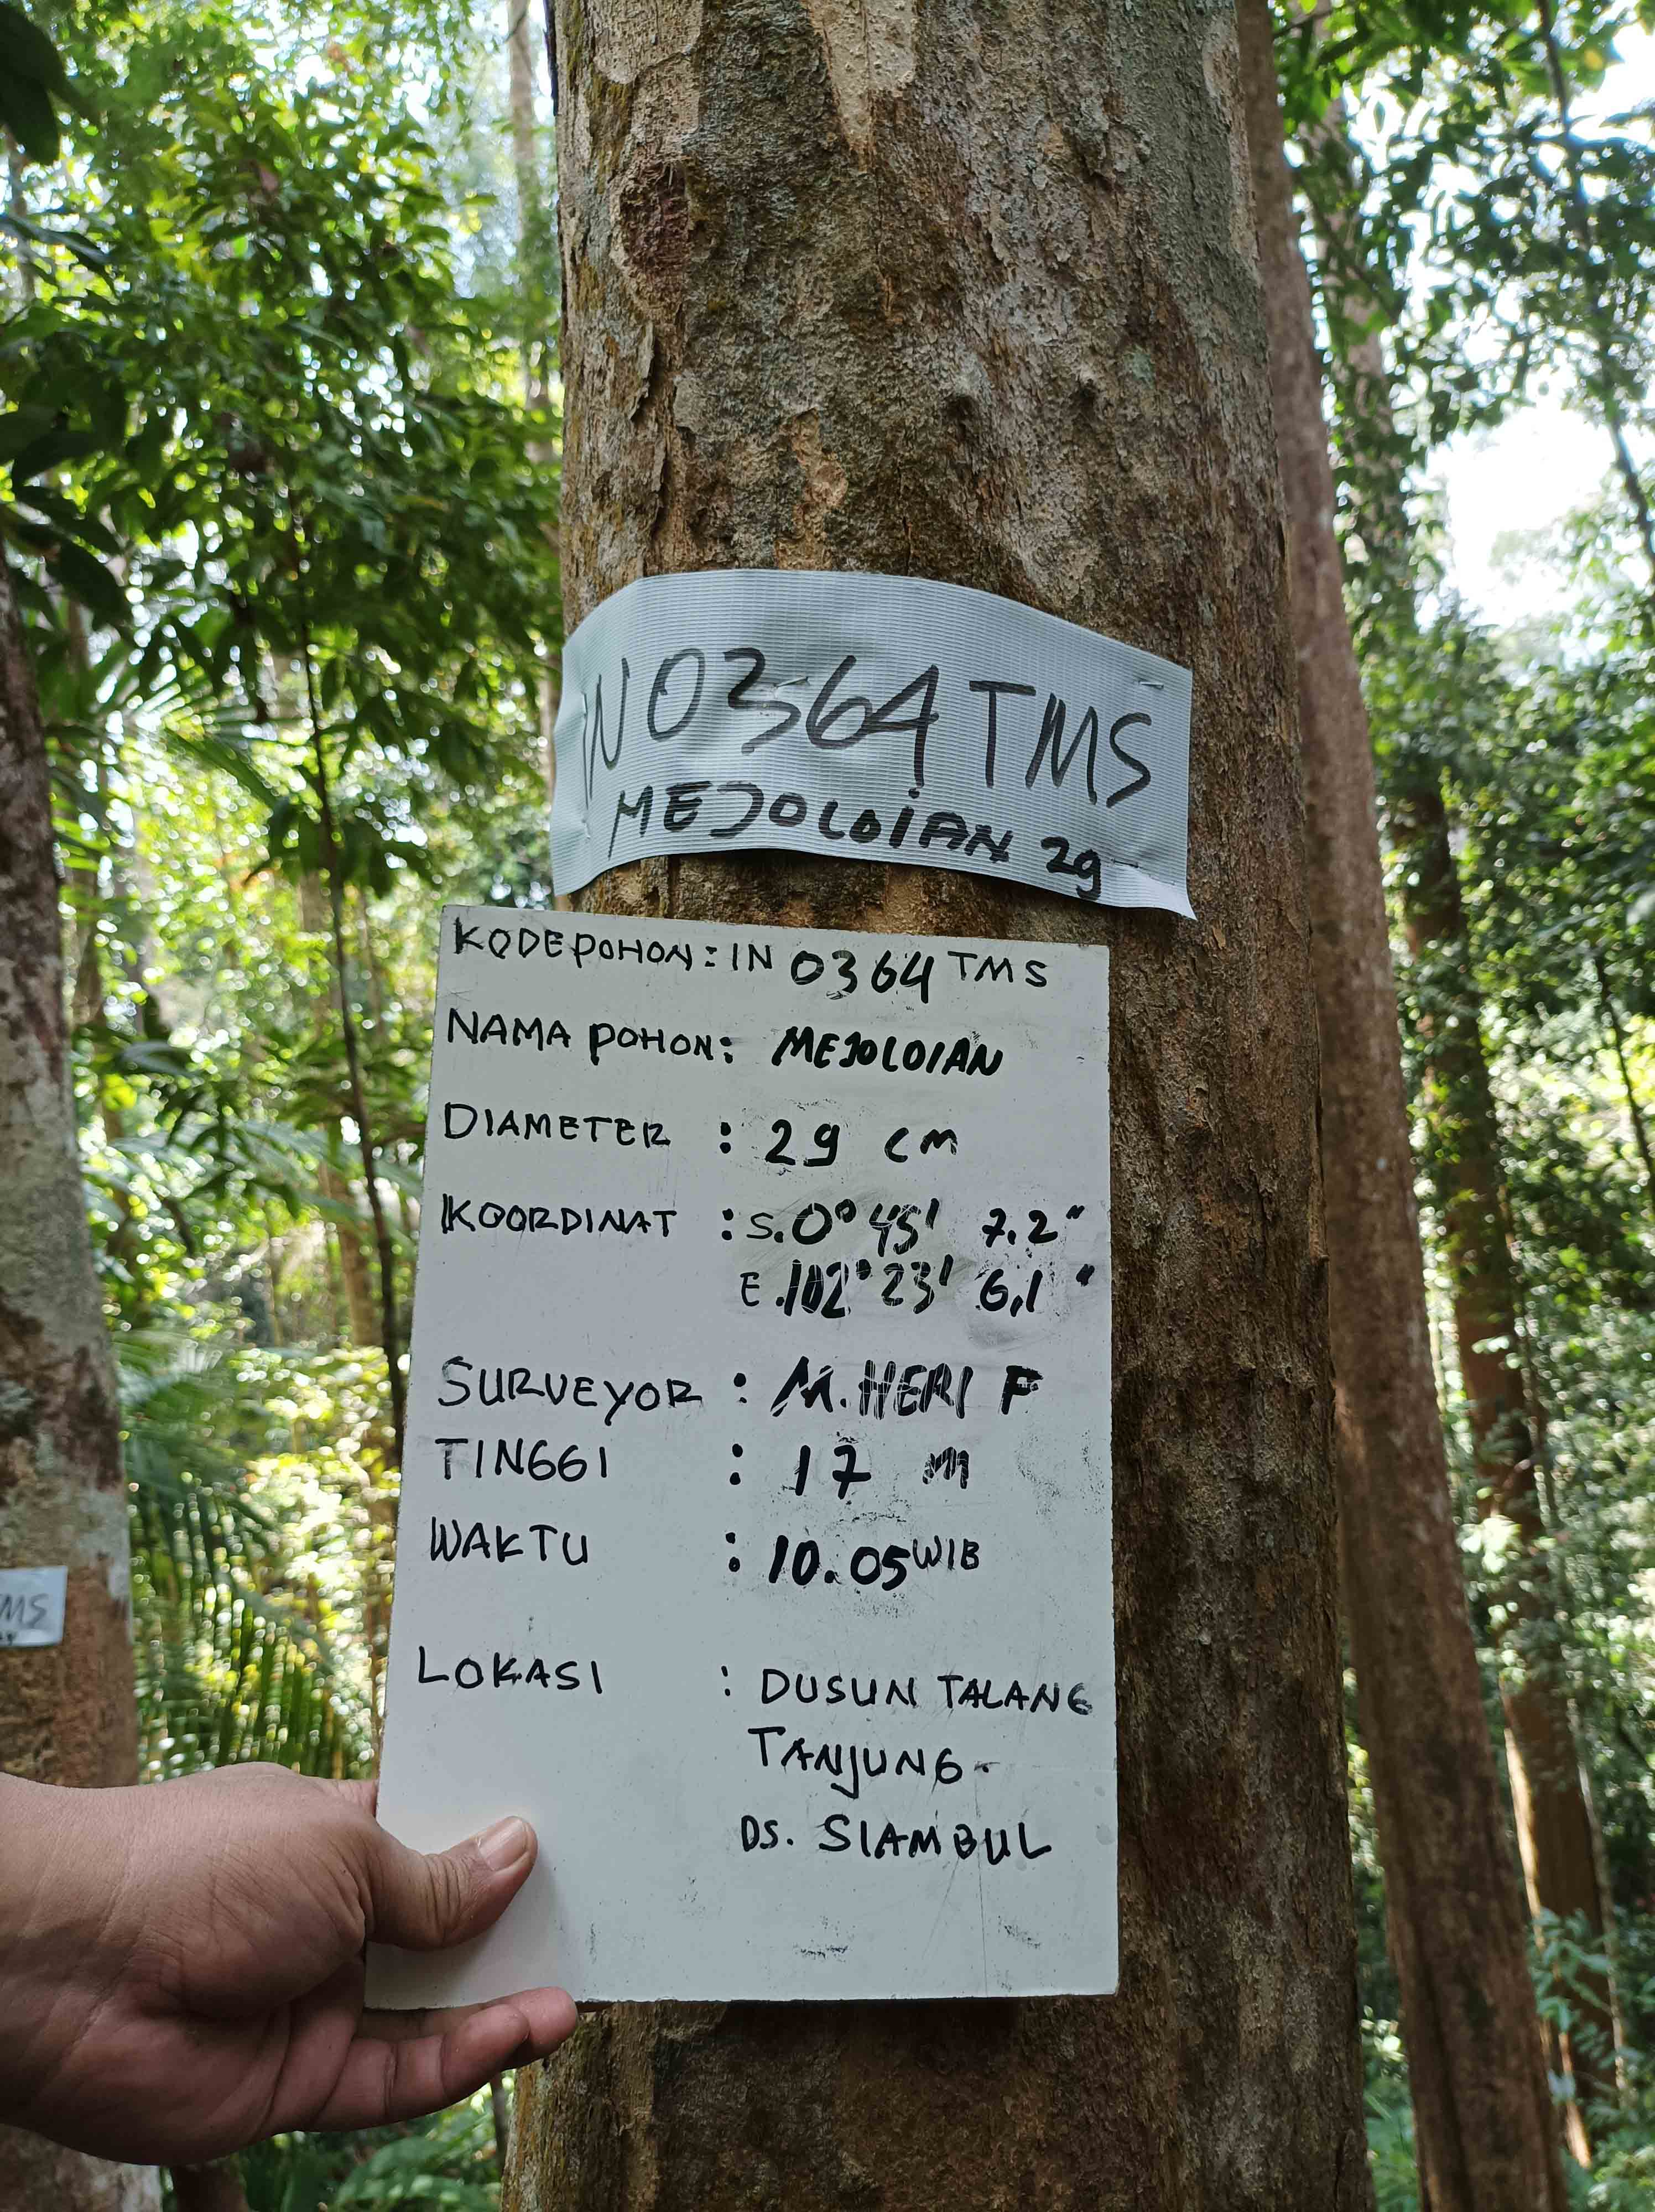 IN 0364 TMS
MEJOLOIAN 29
KODE POHON : IN 0364 TMS
NAMA POHON : MEJOLOIAN
DIAMETER : 29 cm
KOORDINAT : S. 0° 45' 7.2"
E. 102° 23' 6,1"
SURVEYOR : M. HERI F
TINGGI : 17 m
WAKTU : 10.05 WIB
LOKASI : DUSUN TALANG
TANJUNG.
DS. SIAMBUL
MS